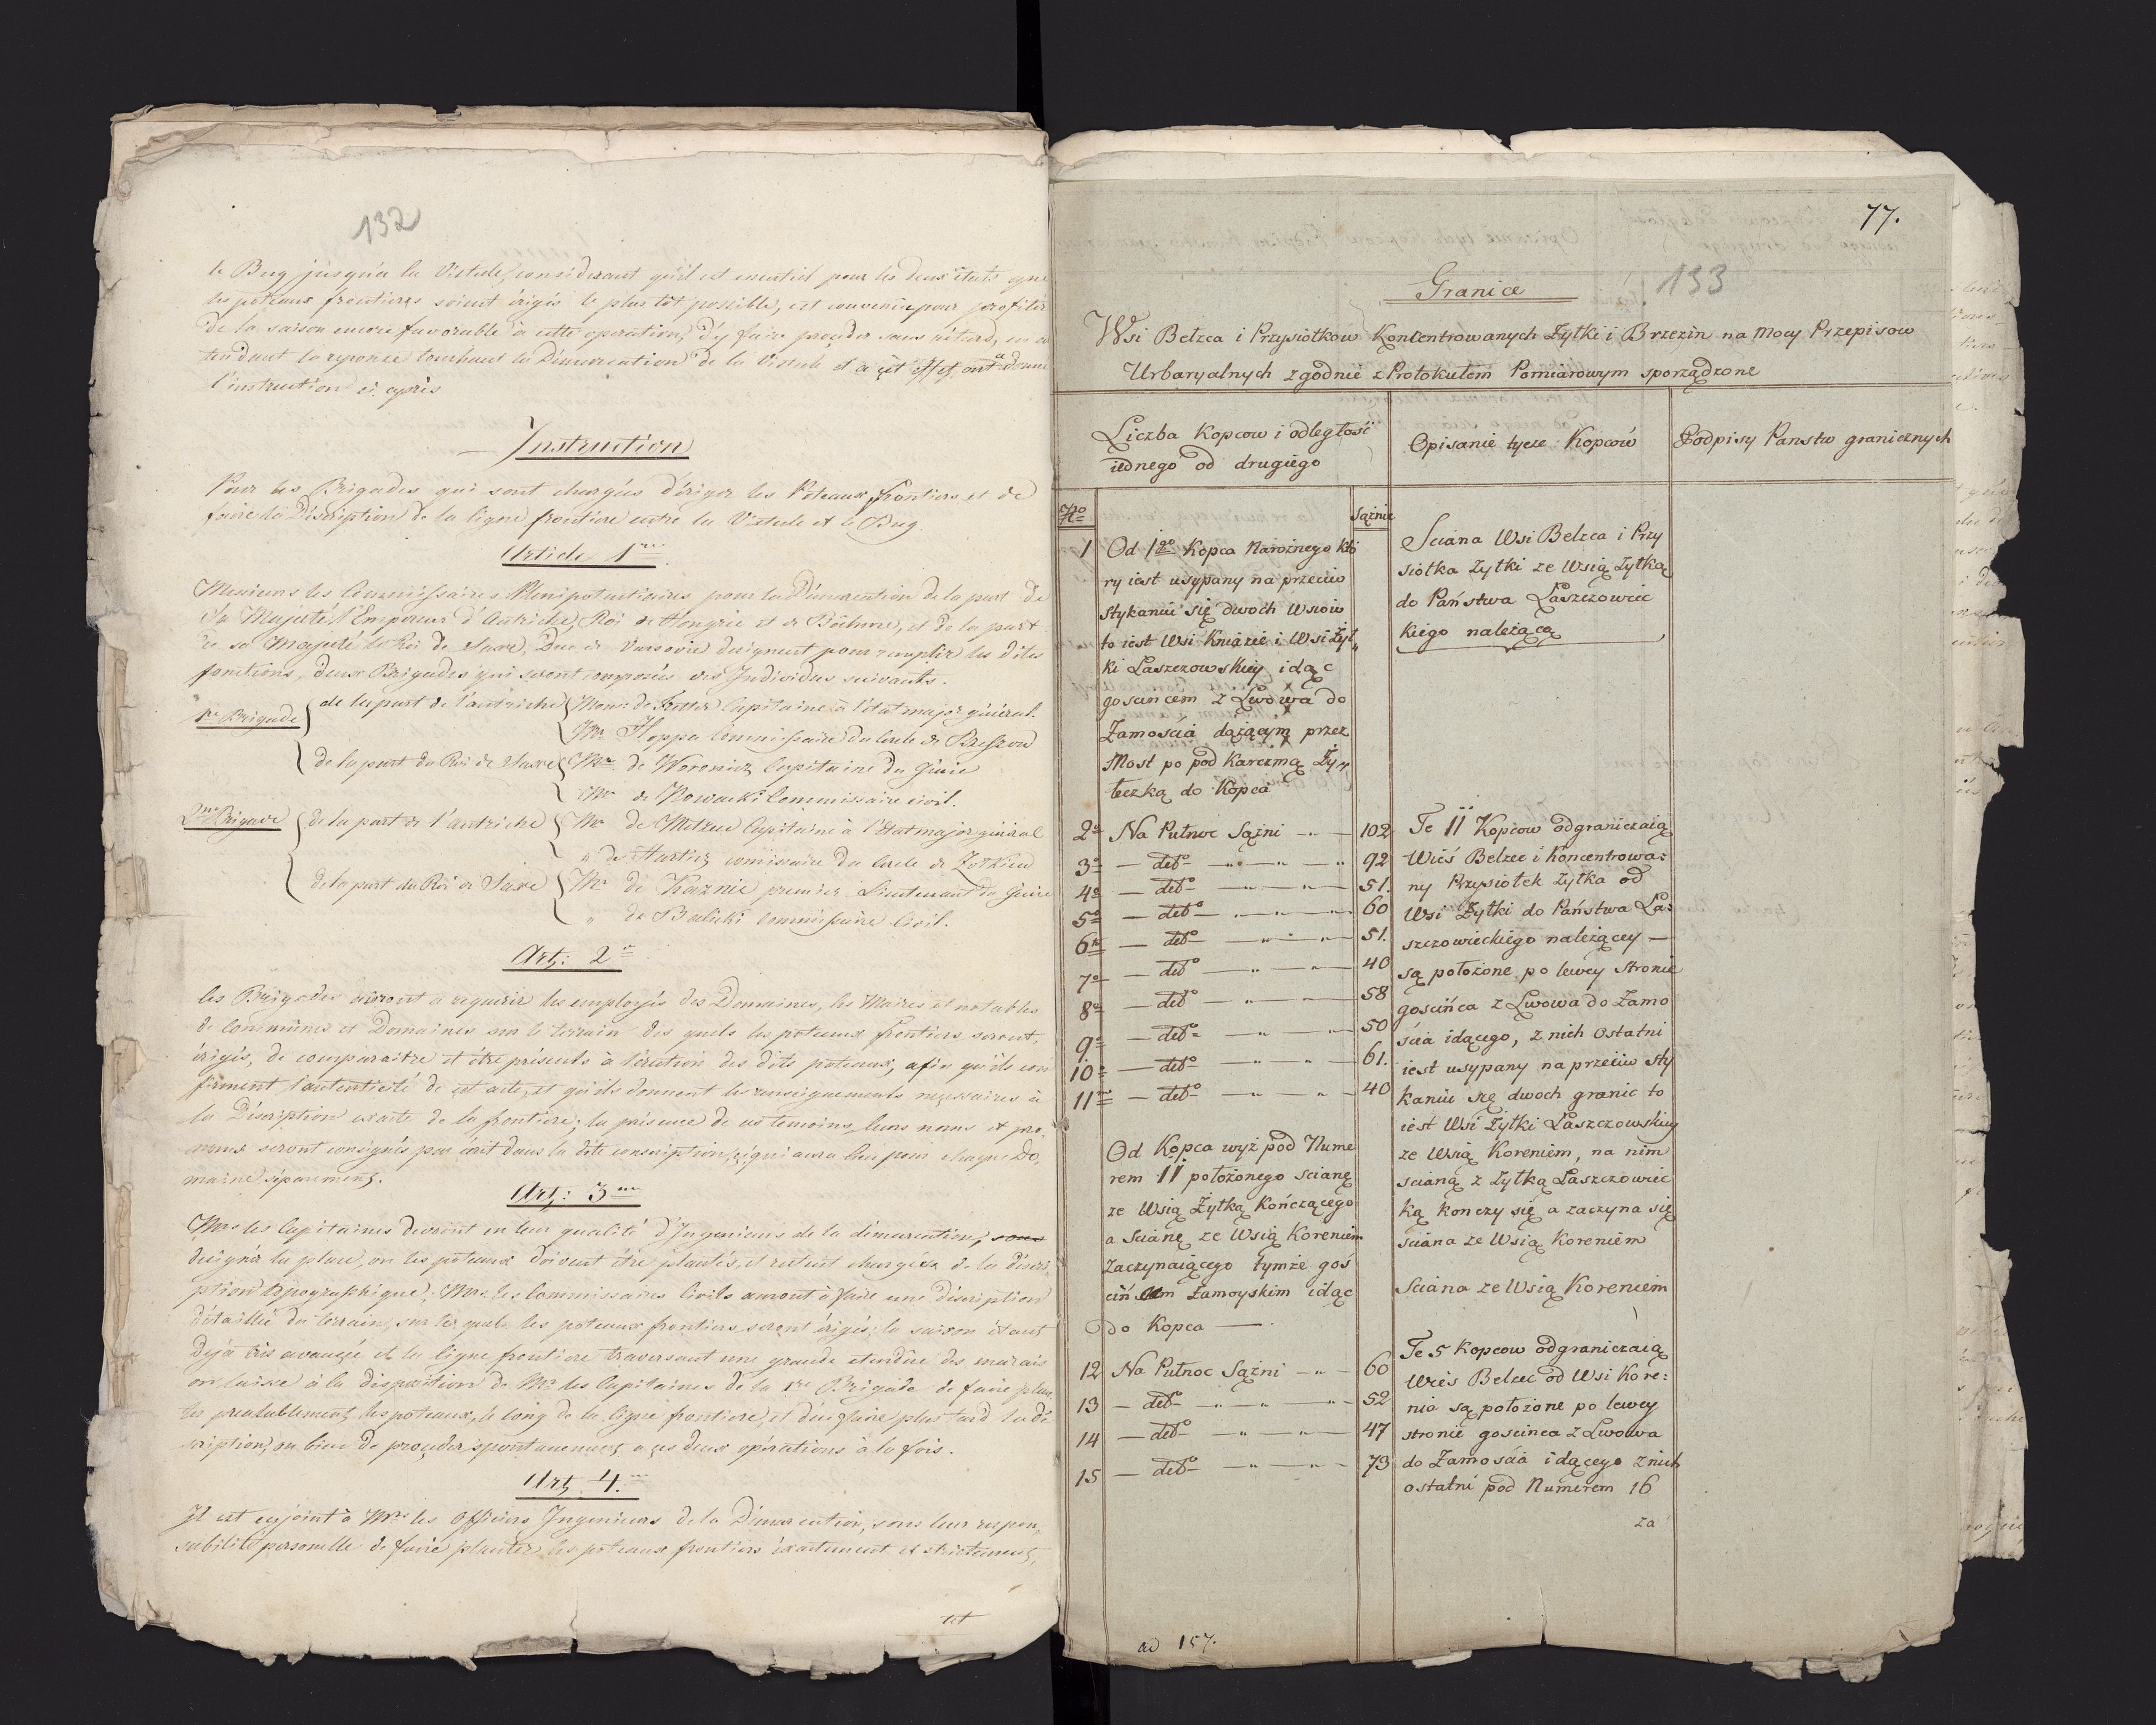 132
le Bug jusqu'a la Vistule, considerant qu'il est essentiel pour les deux états que
les poteaux frontieres soient érigés le plus tôt possible, est convenu pour profiter
de la saison encore favorable à cette operation, d'y faire proceder sans retard, en at
tendant la reponse touchant la Démarcation de la Vistule et a çet effet ont donné
l'instruction ci après
Instruction
Pour les Brigades qui sont chargées d'ériger les Poteaux frontiers et de
faire la Déscription de la ligne frontiere entre la Vistule et le Bug.
Article 1re
Messieurs les Commissaires Plenipotentiaires pour la Démarcation de la part de
Sa Majesté l'Empereur d'Autriche, Roi de Hongrie et de Bôheme, et de la part
de sa Majesté le Roi de Saxe, Duc de Varsovie designent pour remplir les dites
fonctions, deux Brigades qui seront composées des Individus suivants.
1re Brigade de la part de l'autriche Monsr de Capitaine à l'état major géneral.
Mr Hoppe Commissaire du Cercle de Rzeszow
de la part du Roi de Saxe Mr de Woronicz Capitaine du Génie
Mr de Nowacki Commissaire civil.
2me Brigade de la part de l'autriche Mr de Metzue Capitaine à l'Etat major géneral
" de Hartig comissaire du Cercle de Zolkiew
de la part du Roi de Saxe Mr de Kaznie premier Lieutenant du Génie
" de Bielicki Commissaire Civil.
Art: 2e
les Brigades auront a requerir les employés des Domaines, les Maires et notables
de Communes et Domaines sur le terrain des quels les poteaux frontiers seront
érigés, de comparaitre et être présents à l'érection des dits poteaux, afin qu'ils con
firment l'autenticité de çet acte, et qu'ils donnent les renseignements neçessaires à
la Déscription exacte de la frontiere; la présence de ces temoins leurs noms et pre
noms seront consignés par écrit dans la dite conscription, çe qui aura lieu pour chaque Do,
maine séparement.
Art: 3me
Mrs les Capitaines devront en leur qualité d'Ingenieurs de la démarcation,
designer la place, ou les poteaux doivent être plantés, et restent chargés de la déscri
ption topographique. Mrs les Commissaires Civils auront à faire une déscription
détaillée du terrain, sur lesquels les poteaux frontiers seront érigés; la saison étant
déja très avançée et la ligne frontiere traversant une grande etendüe des marais
on laisse à la disposition de Mrs les Capitaines de la 1re Brigade de faire plan
ter prealablement les poteaux, le long de la ligne frontiere, et d'en faire plus tard la dé
scription, ou bien de proçeder spontanement a çes deux opérations à la fois.
Art 4me
Il est enjoint à Mrs les Officiers Ingenieurs de la Démarcation, sous leur respon,
sabilité personelle de faire planter les poteaux frontiers éxactement et strictement,
tet
77.
133
Granice
Wsi Bełzca i Przysiółkow Koncentrowanych Żyłki i Brzezin na Mocy Przepisow
Urbaryalnych zgodnie z Protokułem Pomiarowym sporządzone
Liczba Kopcow i odległość
iednego od drugiego
Opisanie tycze Kopcow
Podpisy Panstw granicznych
No
Sążnie
1 Od 1go Kopca Narożnego któ
ry iest usypany na przeciw
stykaniu się dwoch Wsiow
to iest Wsi Kniazie i Wsi Żył„
ki Łaszczowskiey idąc
goscincem z Lwowa do
Zamościa dążącym przez
Most po pod Karczmą Ży„
łeczką do Kopca
2o Na Pułnoc Sążni 102
3o — detto — " — " 92
4o — detto — " — " 51.
5o — detto — " — " 60
6to — detto — " — " 51.
7o — detto — " — 40
8o — detto — " — 58
9o — detto — " — 50
10o — detto — " — " 61.
11o — detto — " — " 40
Od Kopca wyż pod Nume
rem 11 położonego scianę
ze Wsią Żyłką Kończącego
a Scianę ze Wsią Koreniem
Zaczynaiącego tymże goś
ciń em Zamoyskim idąc
do Kopca —
12 Na Pułnoc Sążni — " — 60
13 — detto — " — " 52
14 — detto — " — " 47
15 — detto — " — " 73
Sciana Wsi Bełzca i Przy
siółka Żyłki ze Wsią Żyłką
do Państwa Łaszczowiec
kiego należącą
Te 11 Kopcow odgraniczaią
Wieś Bełzec i Koncentrowa:
ny Przysiołek Żyłka od
Wsi Żyłki do Państwa Ła:
szczowieckiego należącey —
są położone po lewey stronie
goscińca z Lwowa do Zamo
ścia idącego, z nich Ostatni
iest usypany na przeciw sty
kaniu się dwoch granic to
iest Wsi Żyłki Łaszczowskiey
ze Wsią Koreniem, na nim
scianą z Żyłką Łaszczowiec
ką konczy się a zaczyna się
sciana ze Wsią Koreniem
Sciana ze Wsią Koreniem
Te 5 Kopcow odgraniczaią
Wieś Bełzec od Wsi Kore:
nia są położone po lewey
stronie goscinca z Lwowa
do Zamościa idącego z nich
ostatni pod Numerem 16
za
ad 157.